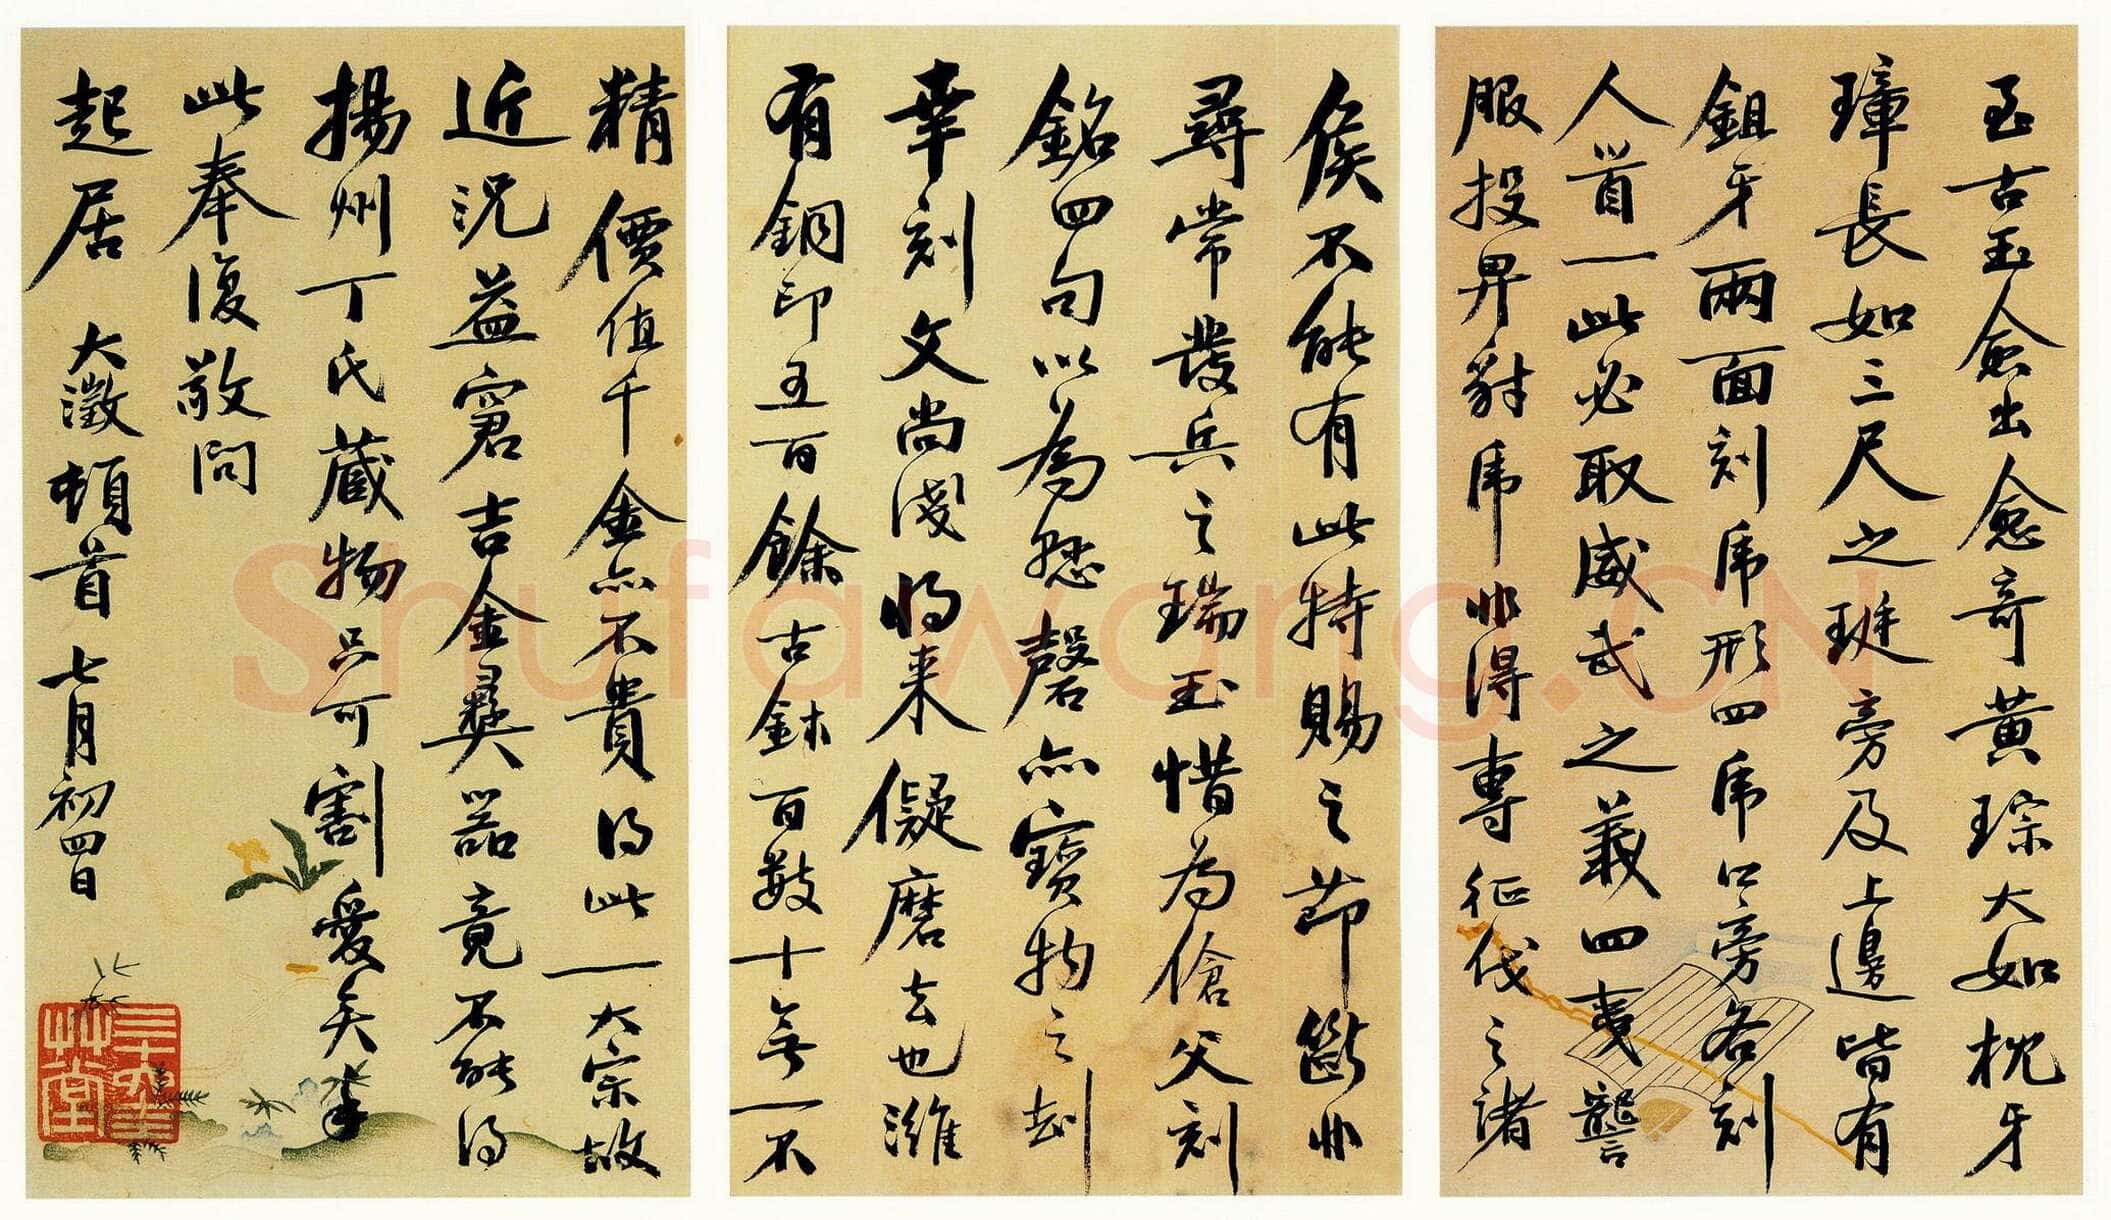 至古玉愈出愈奇黄琮大如枕牙
璋長如三尺之珽旁及上邊皆有
鉏牙兩面刻虎形四虎口旁各刻
人首一此必取威武之義四夷讋
服投畀豺虎非得專征伐之諸
侯不能有此特賜之節斷非
尋常發兵之瑞玉惜為傖父刻
銘四句以為怒磬亦寶物之刼
幸刻文尚淺將来儗磨去也濰
有銅印五百餘古鉥百數十無一不
精價值千金亦不貴得此一大宗故
近況益窘吉金彝器竟不能得
揚州丁氏藏物只可割愛矣手
此奉復敬問
起居 大澂頓首 七月初四日
Shufawang.CN